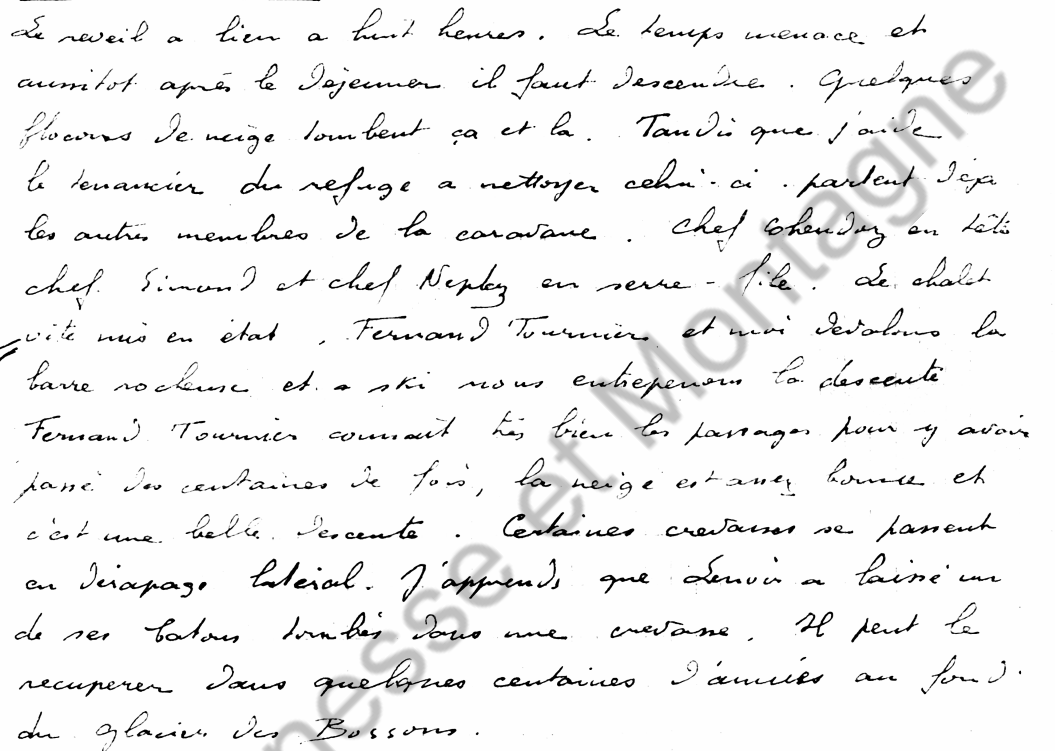 Le reveil a lieu a huit heures. Le temps menace et
aussitot après le Dejeuner il faut descendre. Quelques
flocons de neige tombent ça et la. Tandis que j'aide
le tenancier du refuge a nettoyer celui-ci. partent Deja
les autres membres de la caravane. Chef Cohendoz en tête
chef Simond et chef Neplaz en serre-file. Le chalet
vite mis en état, Fernand Tournier et moi devalons la
barre rocheuse et a ski nous entreprenons la descente
Fernand Tournier connait très bien les passages pour y avoir
passé des centaines de fois, la neige est assez bonne et
c'est une belle descente. Certaines crevasses se passent
en dérapage latéral. J'apprends que Lenoir a laissé un
de ses batons tombés dans une crevasse. Il peut le
recuperer dans quelques centaines d'années au fond
du glacier des Bossons.
nesse et Montagne